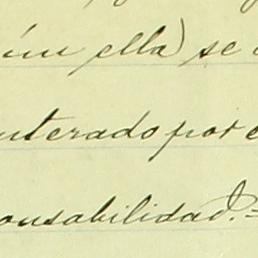 ún ella) se
nterado por e
onsabilidad.=